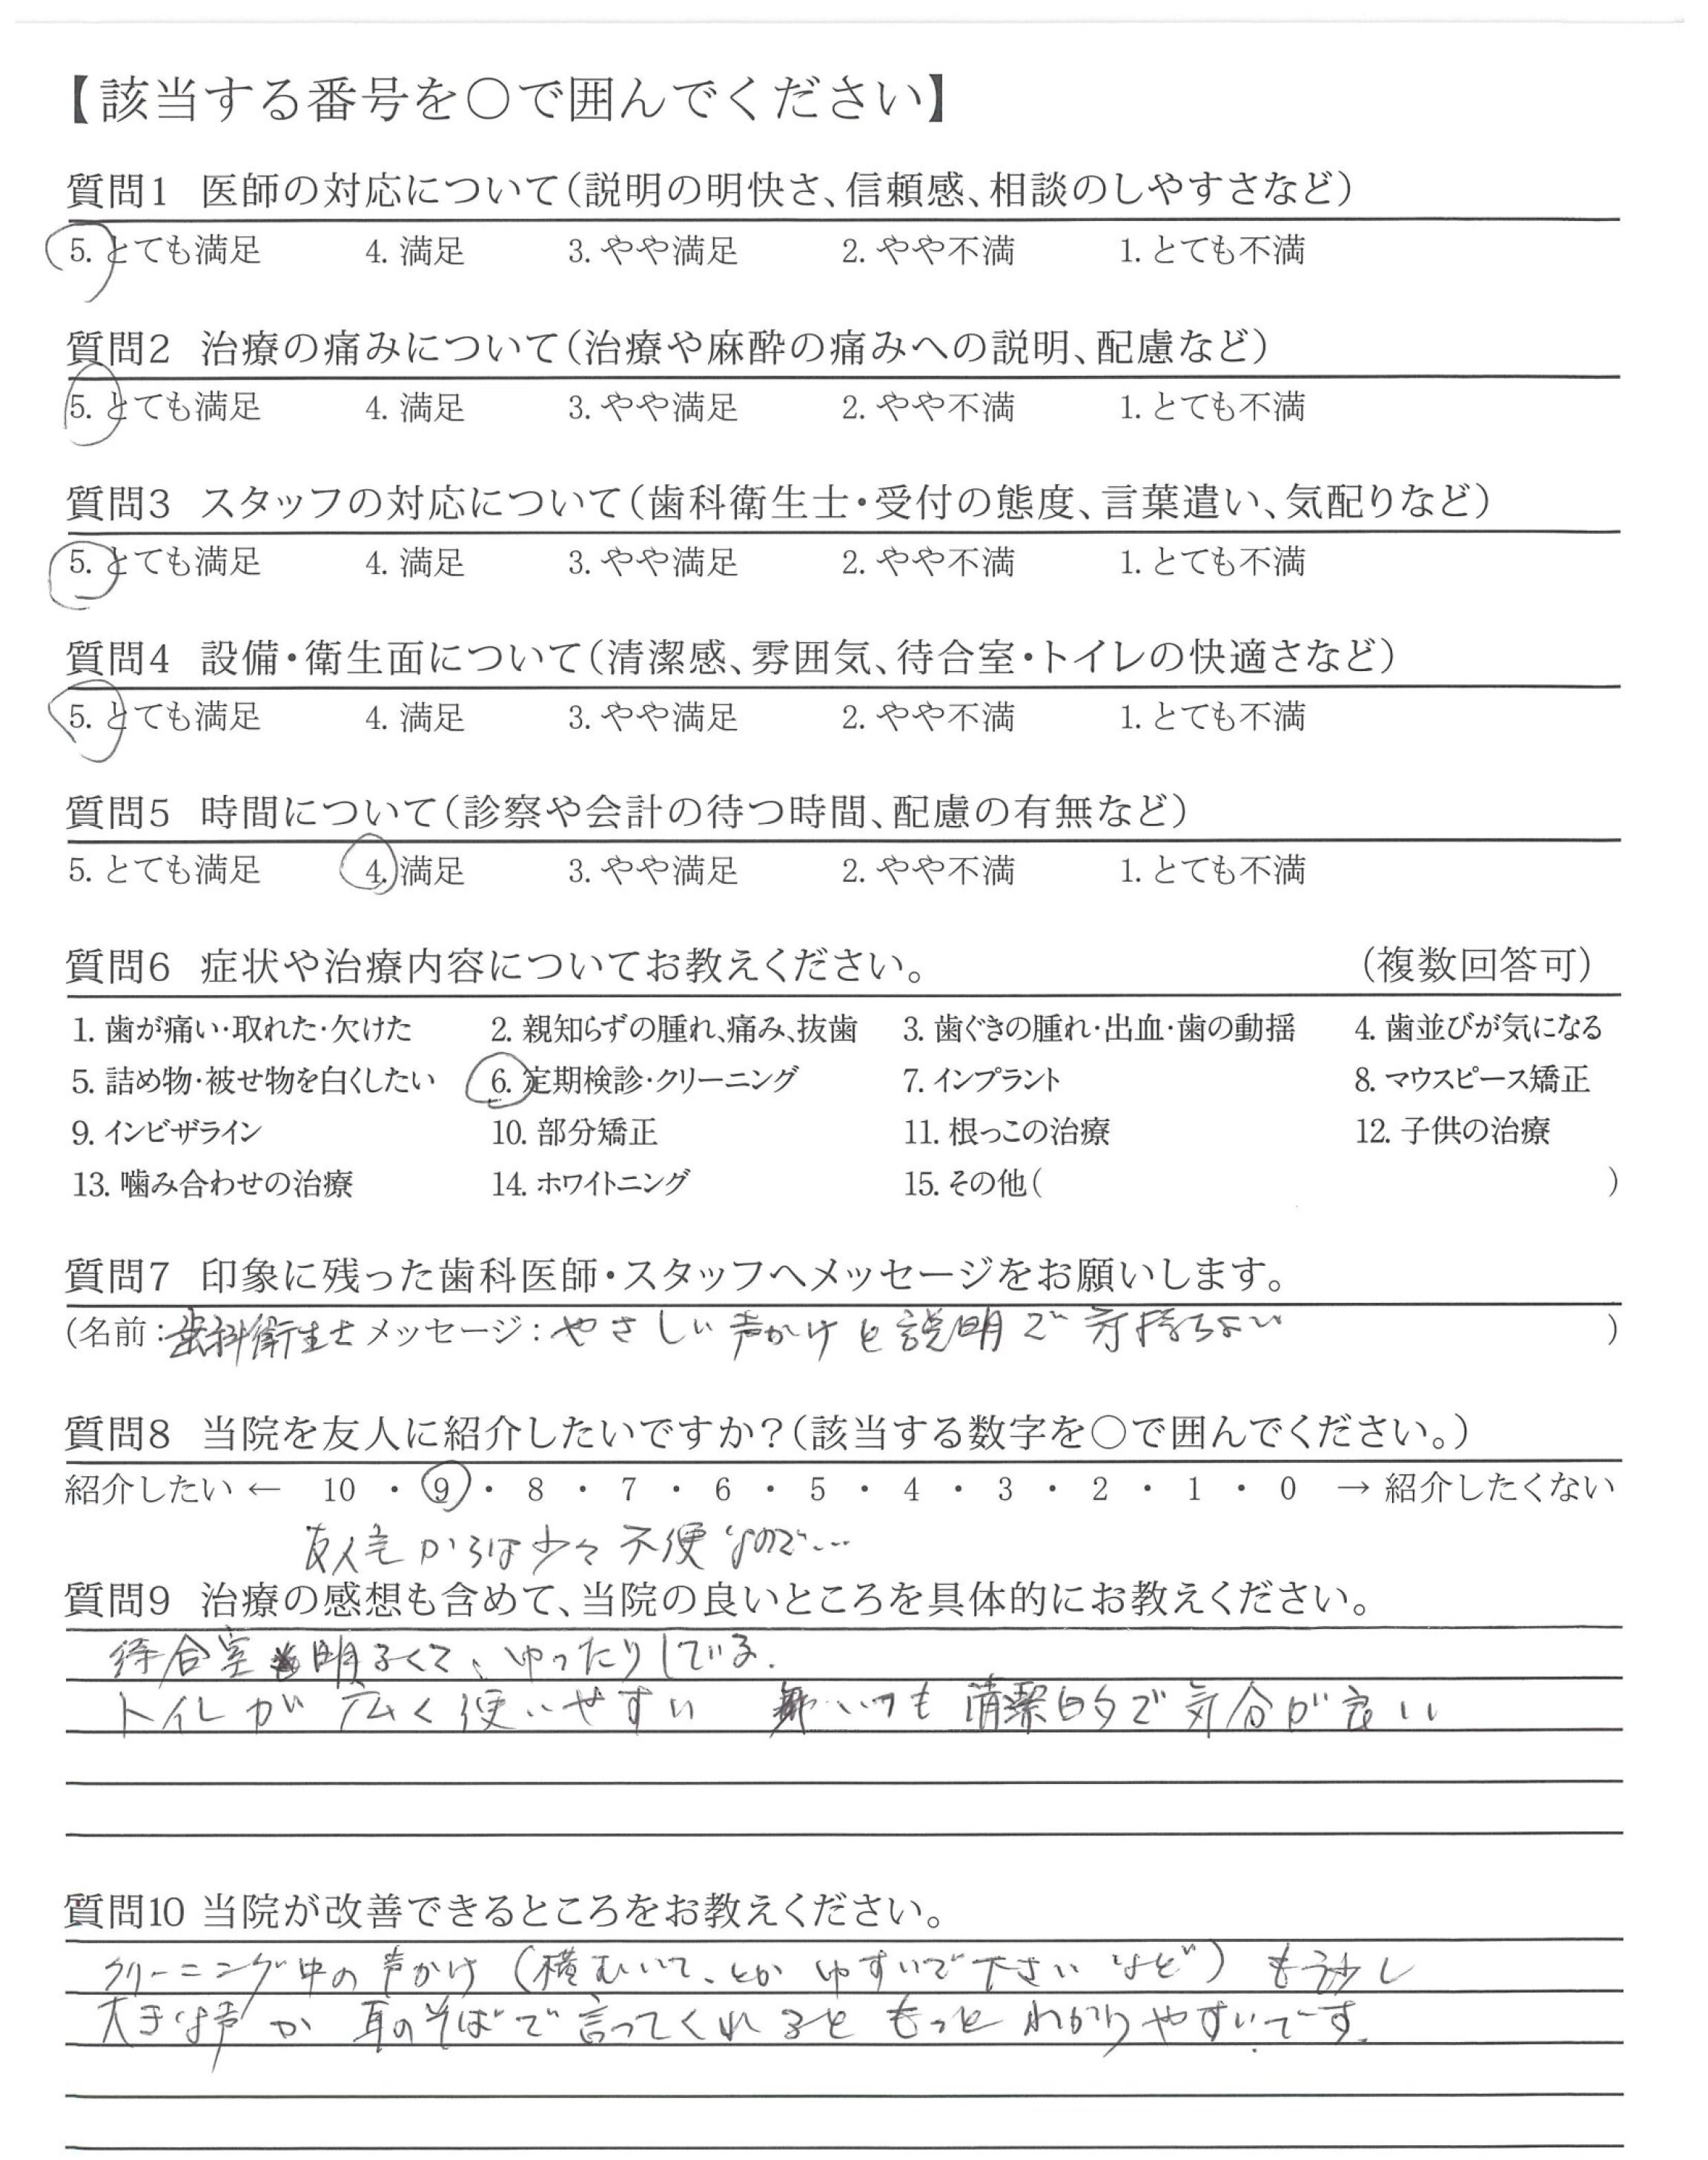 【該当する番号を○で囲んでください】
質問1 医師の対応について(説明の明快さ、信頼感、相談のしやすさなど)
5. とても満足 4. 満足 3. やや満足 2. やや不満 1. とても不満
質問2 治療の痛みについて(治療や麻酔の痛みへの説明、配慮など)
5. とても満足 4. 満足 3. やや満足 2. やや不満 1. とても不満
質問3 スタッフの対応について(歯科衛生士・受付の態度、言葉遣い、気配りなど)
5. とても満足 4. 満足 3. やや満足 2. やや不満 1. とても不満
質問4 設備・衛生面について(清潔感、雰囲気、待合室・トイレの快適さなど)
5. とても満足 4. 満足 3. やや満足 2. やや不満 1. とても不満
質問5 時間について(診察や会計の待つ時間、配慮の有無など)
5. とても満足 4. 満足 3. やや満足 2. やや不満 1. とても不満
質問6 症状や治療内容についてお教えください。 (複数回答可)
1. 歯が痛い・取れた・欠けた 2. 親知らずの腫れ、痛み、抜歯 3. 歯ぐきの腫れ・出血・歯の動揺 4. 歯並びが気になる
5. 詰め物・被せ物を白くしたい 6. 定期検診・クリーニング 7. インプラント 8. マウスピース矯正
9. インビザライン 10. 部分矯正 11. 根っこの治療 12. 子供の治療
13. 噛み合わせの治療 14. ホワイトニング 15. その他( )
質問7 印象に残った歯科医師・スタッフへメッセージをお願いします。
(名前:歯科衛生士 メッセージ:やさしい声かけと説明で気持ちよい )
質問8 当院を友人に紹介したいですか?(該当する数字を○で囲んでください。)
紹介したい ← 10 ・ 9 ・ 8 ・ 7 ・ 6 ・ 5 ・ 4 ・ 3 ・ 2 ・ 1 ・ 0 → 紹介したくない
友人宅からは少々不便なので…
質問9 治療の感想も含めて、当院の良いところを具体的にお教えください。
待合室 明るくて、ゆったりしている.
トイレが広く使いやすい いつも清潔的で気分が良い
質問10 当院が改善できるところをお教えください。
クリーニング中の声かけ(横むいて、とか ゆすいで下さい など)もう少し
大きな声か 耳のそばで言ってくれると もっと わかりやすいです.